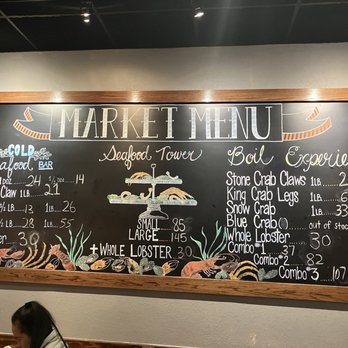 MARKET MENU
COLD
Seafood BAR
DOZ 24 ½ DOZ 14
Claw 1LB 21
½ LB 13 1LB 26
½ LB 28 1LB 55
30
Seafood Tower
SMALL 85
LARGE 145
+ WHOLE LOBSTER 30
Boil Experie
Stone Crab Claws 1LB 2
King Crab Legs 1LB 6
Snow Crab 1LB 33
Blue Crab (1) out of stoc
Whole Lobster 30
Combo*1 37
Combo*2 82
Combo*3 107